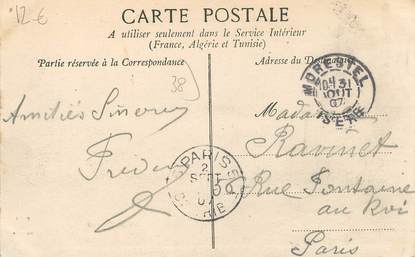 12 €
CARTE POSTALE
A utiliser seulement dans le Service Intérieur
(France, Algérie et Tunisie)
Partie réservée à la Correspondance
Adresse du Destinataire
38
MORESTEL
31
AOUT
07
ISERE
Amitiés
PARIS
2
SEPT
07
Madame
Ravinet
Rue Fontaine
au Roi
Paris